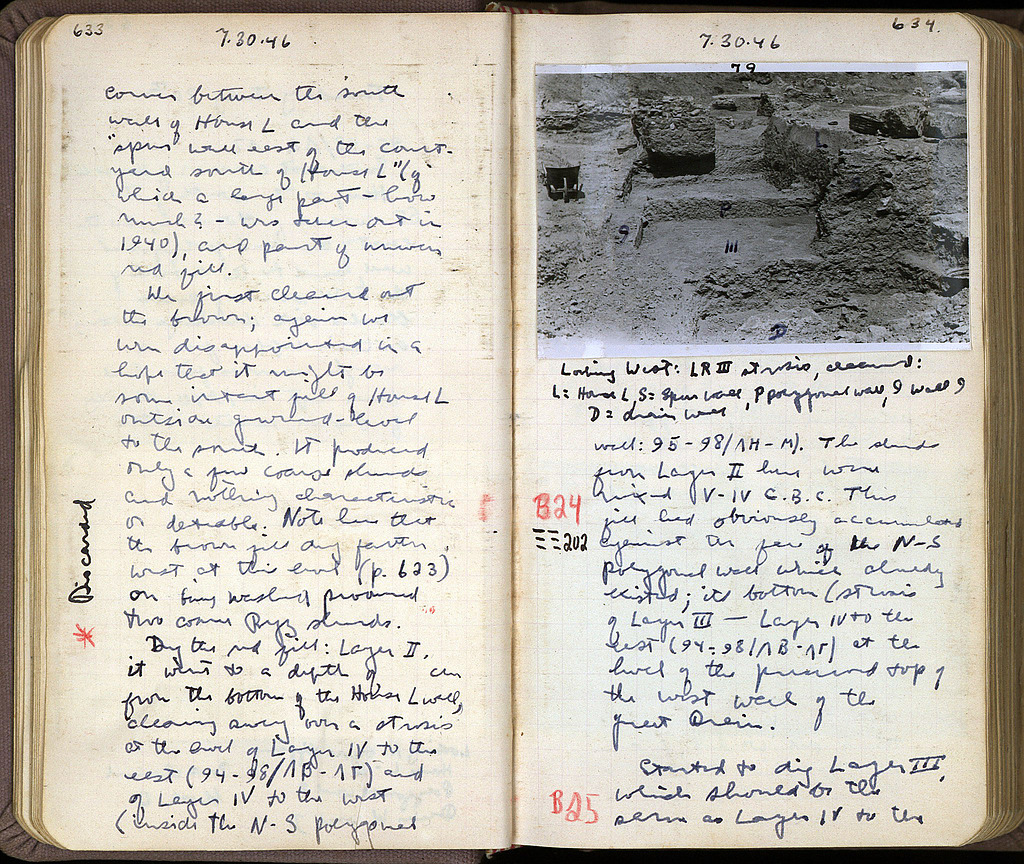 633
7.30.46
corner between the south
wall of House L and the
"spur wall east of the court-
yard south of House L" (of
which a large part – how
much? – was taken out in
1940), and part of uneven
red fill.
We first cleaned out
the brown; again we
were disappointed in a
hope that it might be
some intact fill of House L
outside ground-level
to the south. It produced
only a few coarse sherds
and nothing characteristic
or dateable. Note here that
the brown fill dug farther
west at this level (p. 623)
on being washed produced
two coarse Byz sherds.
Discarded
*
Dug the red fill: Layer II.
it went to a depth of cm
from the bottom of the House L wall,
clearing away over a strosis
at the level of Layer IV to the
east (94-98/ΛB-ΛΓ) and
of Layer IV to the west
(inside the N-S polygonal
634.
7.30.46
79
L
P
9
III
D
Looking West: LR III strosis, cleaned:
L = House L, S = Spur wall, P polygonal wall, 9 wall 9
D = drain wall
wall: 95-98/ΛH-M). The sherds
from Layer II here were
mixed V-IV C.B.C. This
fill had obviously accumulated
against the face of the N-S
polygonal wall which already
existed; its bottom (strosis
of Layer III – Layer IV to the
east (94-98/ΛB-ΛΓ) at the
level of the preserved top of
the west wall of the
great Drain.
B24
202
Started to dig Layer III,
which should be the
same as Layer IV to the
B25